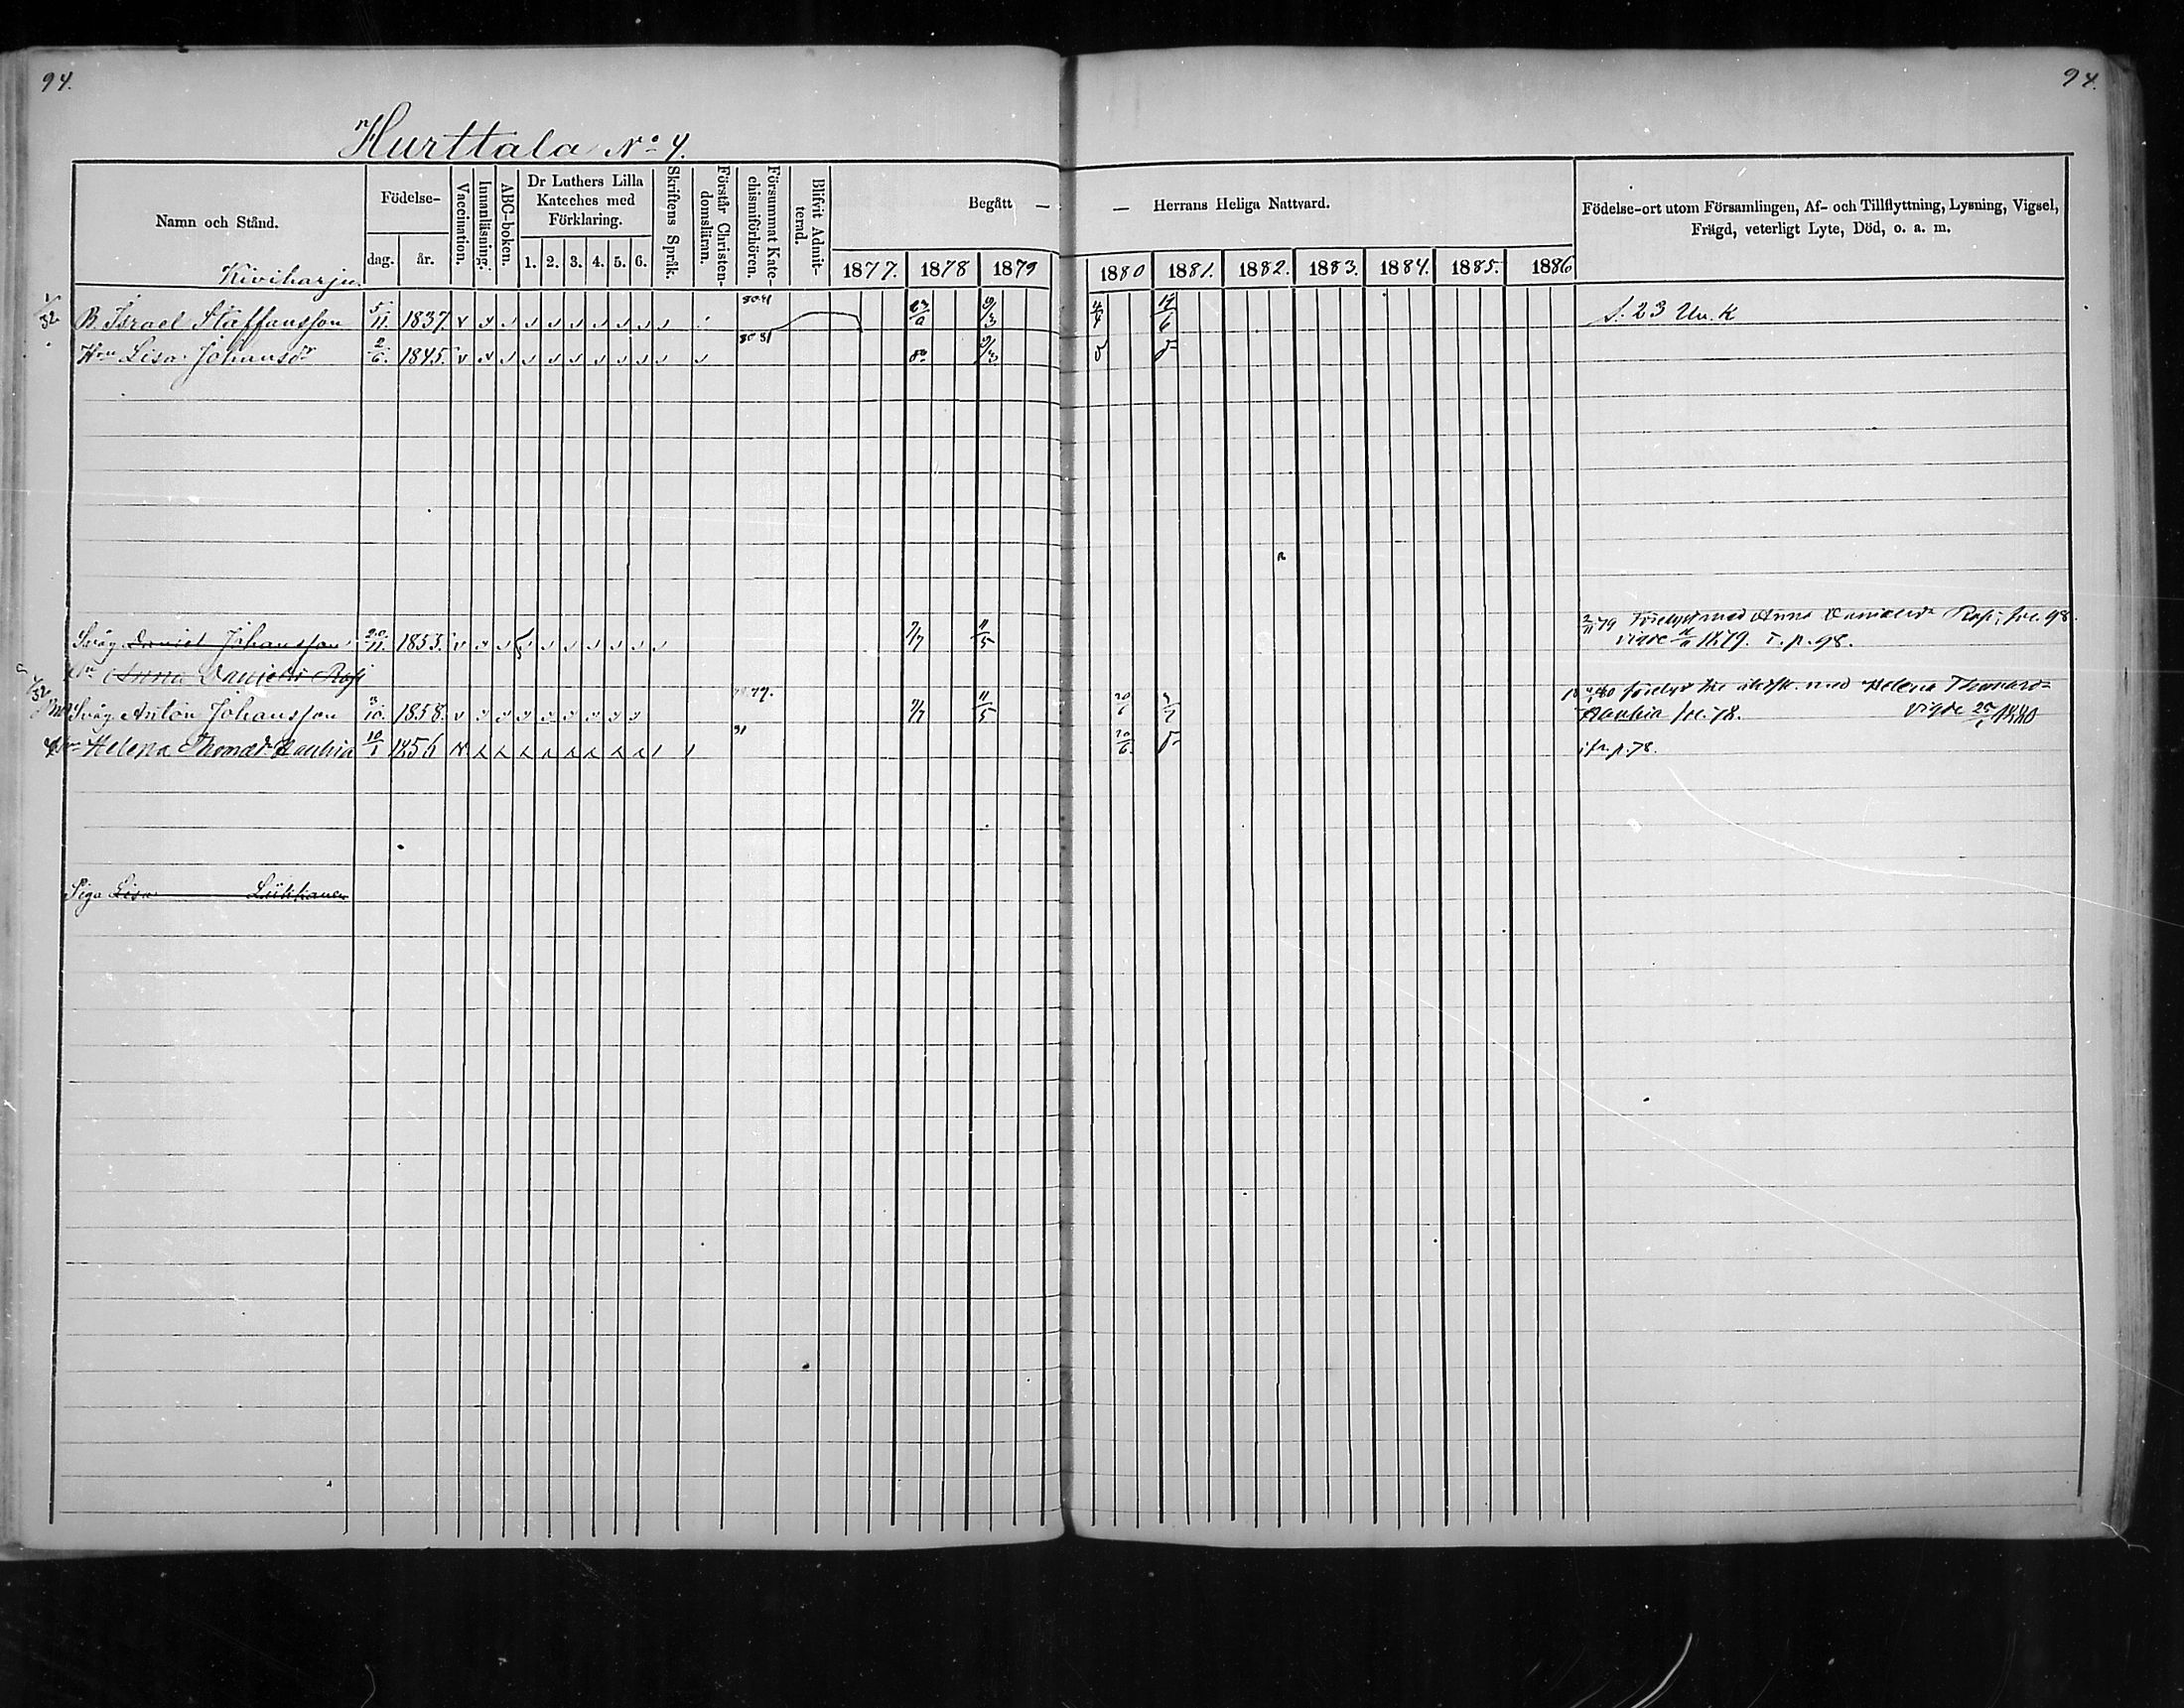 94.
94.
Hurttala No 4.
Namn och Stånd.
Födelse-
dag.
år.
Vaccination.
Innanläsning.
ABC-boken.
Dr Luthers Lilla
Kateches med
Förklaring.
1. 2. 3. 4. 5. 6.
Skriftens Språk.
Förstår Christen-
domsläran.
Försummat Kate-
chismiförhören.
Blifvit Admit-
terad.
Begått —
— Herrans Heliga Nattvard.
1877. 1878 1879
1880 1881. 1882. 1883. 1884. 1885. 1886
Födelse-ort utom Församlingen, Af- och Tillflyttning, Lysning, Vigsel,
Frägd, veterligt Lyte, Död, o. a. m.
Kiviharju
B. Israel Staffansson 5/11. 1837. 9/3 s. 23
Hru Lisa Johansdr 2/6. 1845. 9/3
Svåg Daniel Johansson 20/11. 1853. 7/7 11/5 med Anna Danielsdr
vigde 1879. T. p. 98.
Hru Anna Danielsdr
Svåg Anton Johansson 3/10. 1858. 7/7 11/5 med Helena Thomasd=
78. vigde 25/1 1880
Helena Thomasdr 10/1 1856 20/6 ifr. p. 78.
Piga Lisa